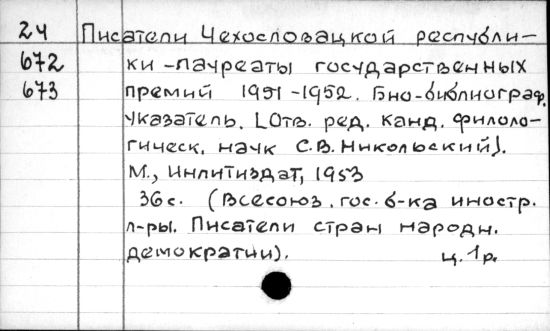 24 Писатели Чехословацкой республи-
672 ки - лауреаты государственных
673 премий 1951-1952. Био-библиограф.
указатель. [Отв. ред. канд. филоло-
гическ. наук С.В. Никольский].
М., Инлитиздат, 1953
36 с. (Всесоюз. гос. б-ка иностр.
л-ры. Писатели стран народн.
демократии). ц. 1 р.